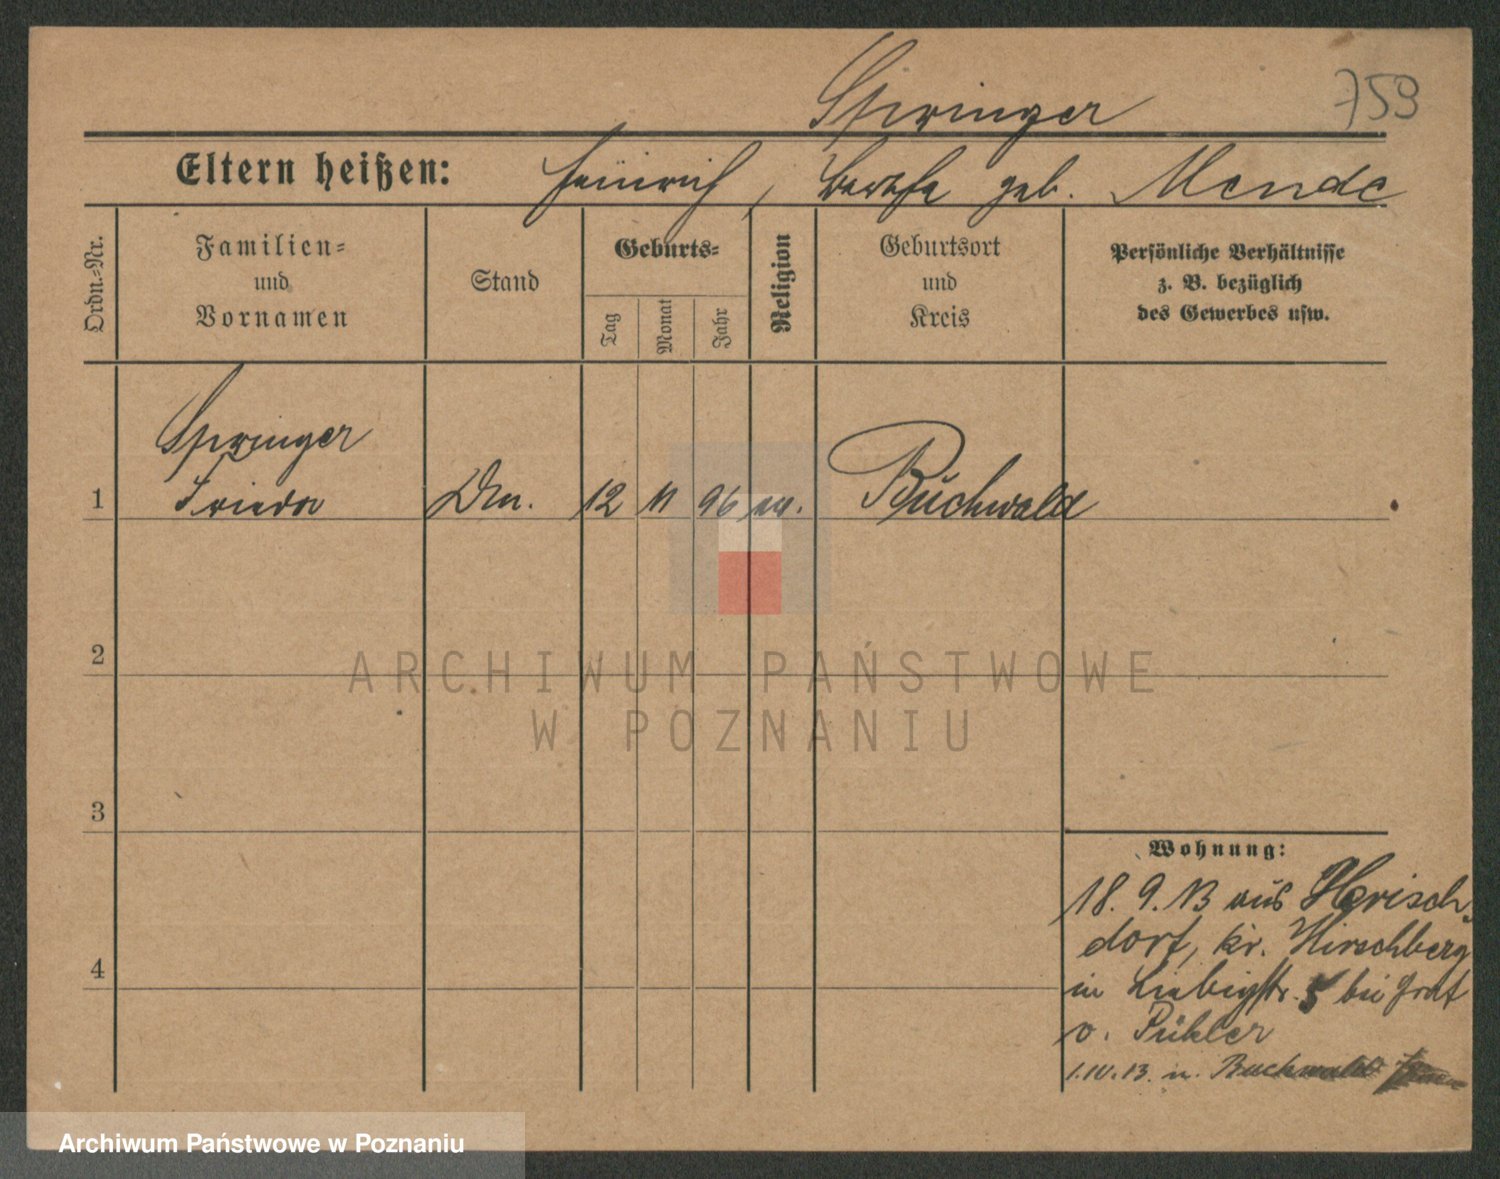 759
Springer
Eltern heißen: Heinrich, Bertha geb. Mende
Ordn.-Nr.
Familien-
und
Vornamen
Stand
Geburts-
Tag
Monat
Jahr
Religion
Geburtsort
und
Kreis
Persönliche Verhältnisse
z. B. bezüglich
des Gewerbes usw.
Springer
1 Frieda 12 11 96 ev. Buchwald
2
3
4
Wohnung:
18. 9. 13 aus Herisch-
dorf, Kr. Hirschberg
in Liebigstr. 5 bei Graf
v. Pükler
1.IV.13. n. Buchwald
ARCHIWUM PAŃSTWOWE
W POZNANIU
Archiwum Państwowe w Poznaniu